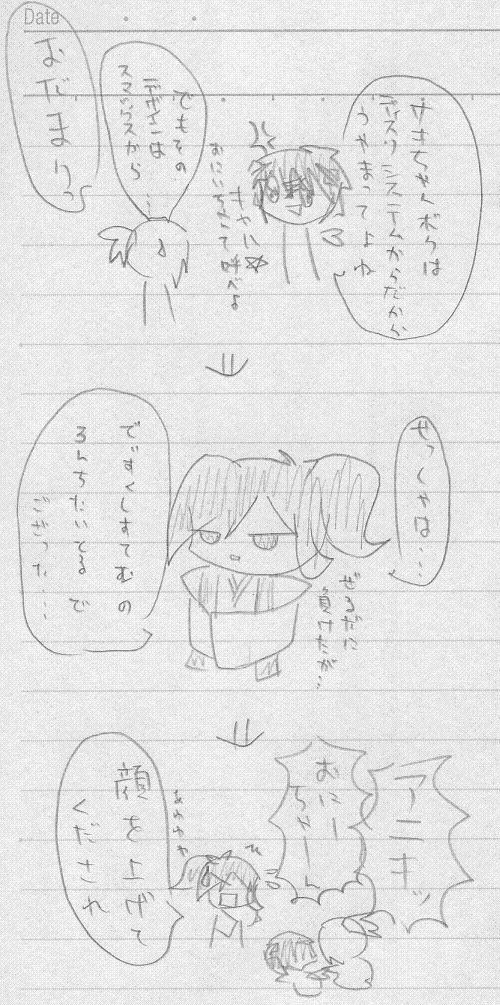 Date
サキちゃんボクは
ディスクシステムからだから
うやまってよね
キャハ☆
おにいちゃんて呼べよ
でもその
デザインは
スマックスから
…
おだまりっ
せっしゃは…
ぜるだに
負けたが…
でぃすくしすてむの
ろんちたいとるで
ござった…
アニキッ
おにー
ちゃーん
あわわわ
顔を上げて
くだされ